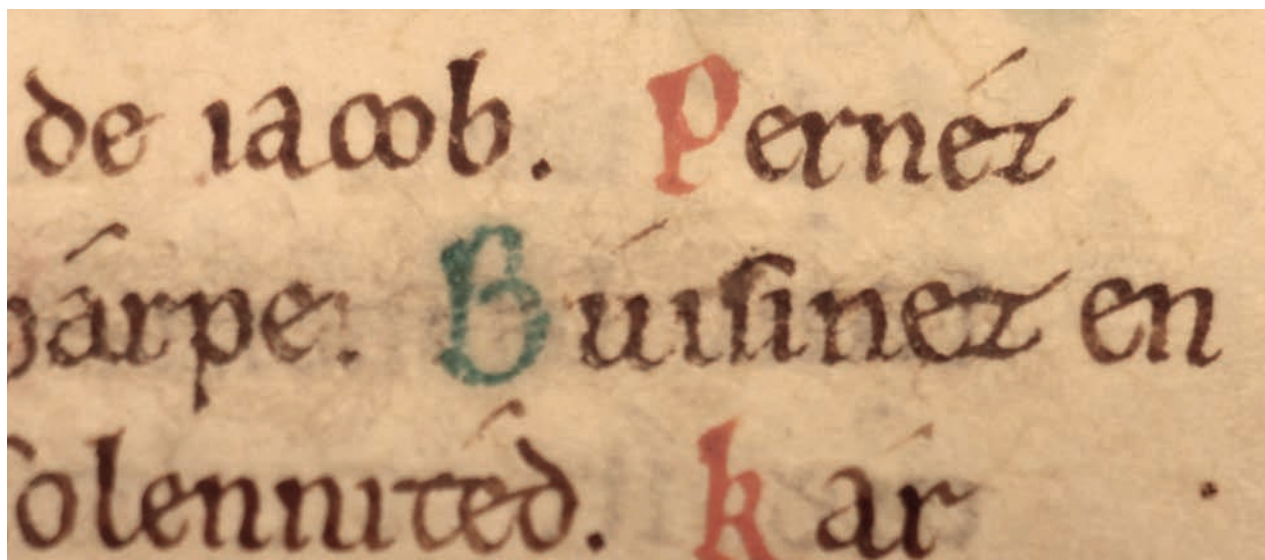 de iacob. Pernéz
hárpe. Búisinez en
solennitéd. kár